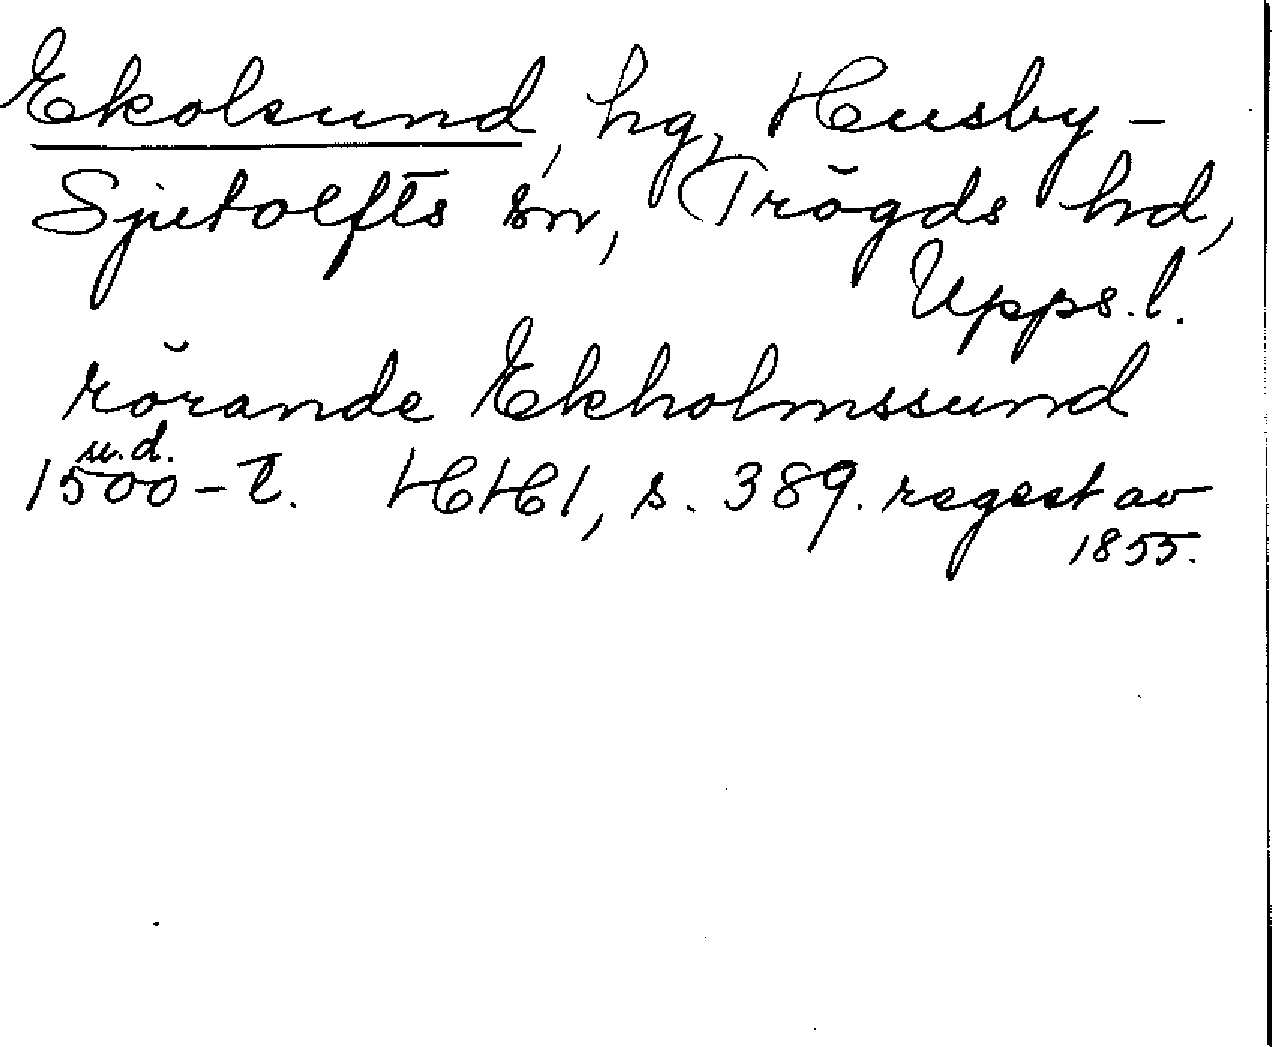 Ekolsund, hg, Husby-
Sjutolfts sn, Trögds hd,
Upps. l.
rörande Ekholmssund
u.d.
1500-t. HH1, s. 389. regest av
1855.